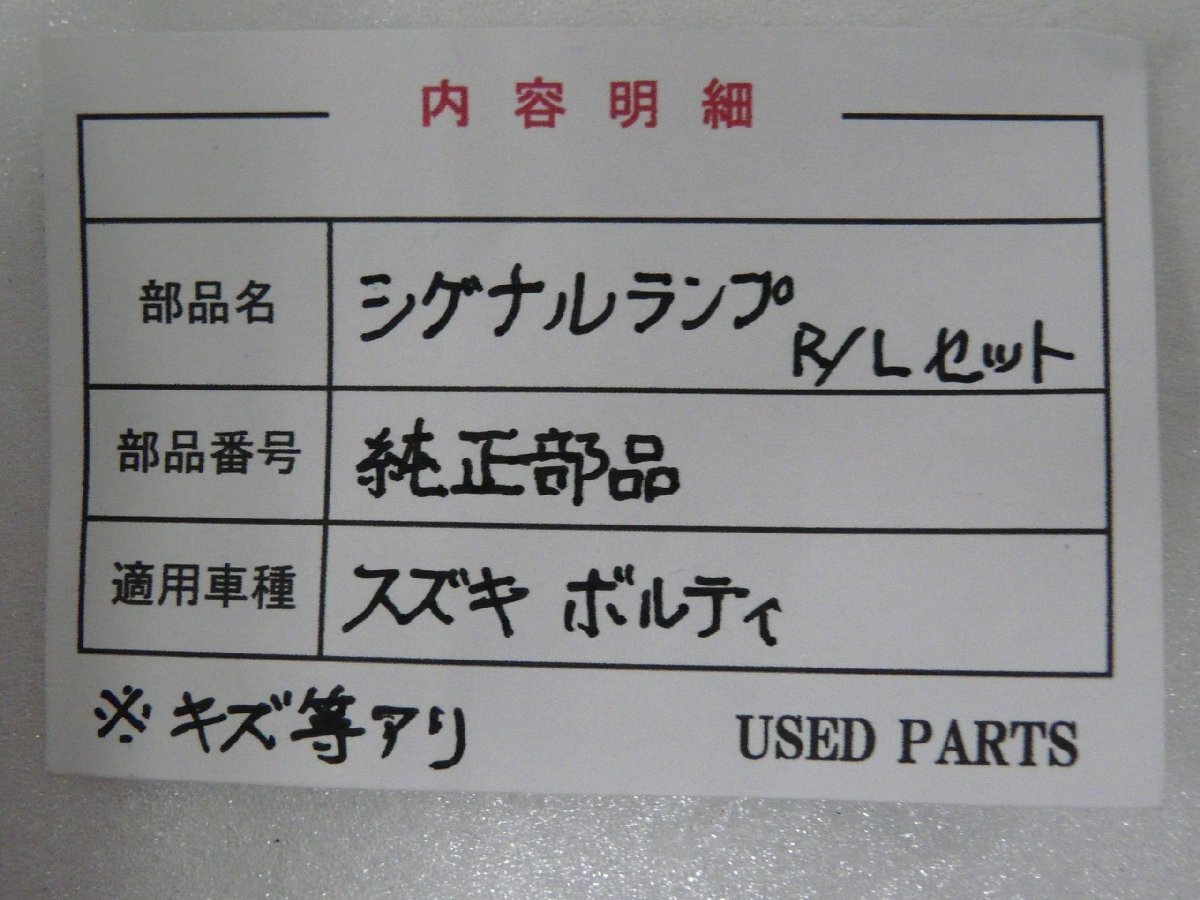 内容明細
部品名 シグナルランプ
R/Lセット
部品番号 純正部品
適用車種 スズキ ボルティ
※キズ等アリ USED PARTS